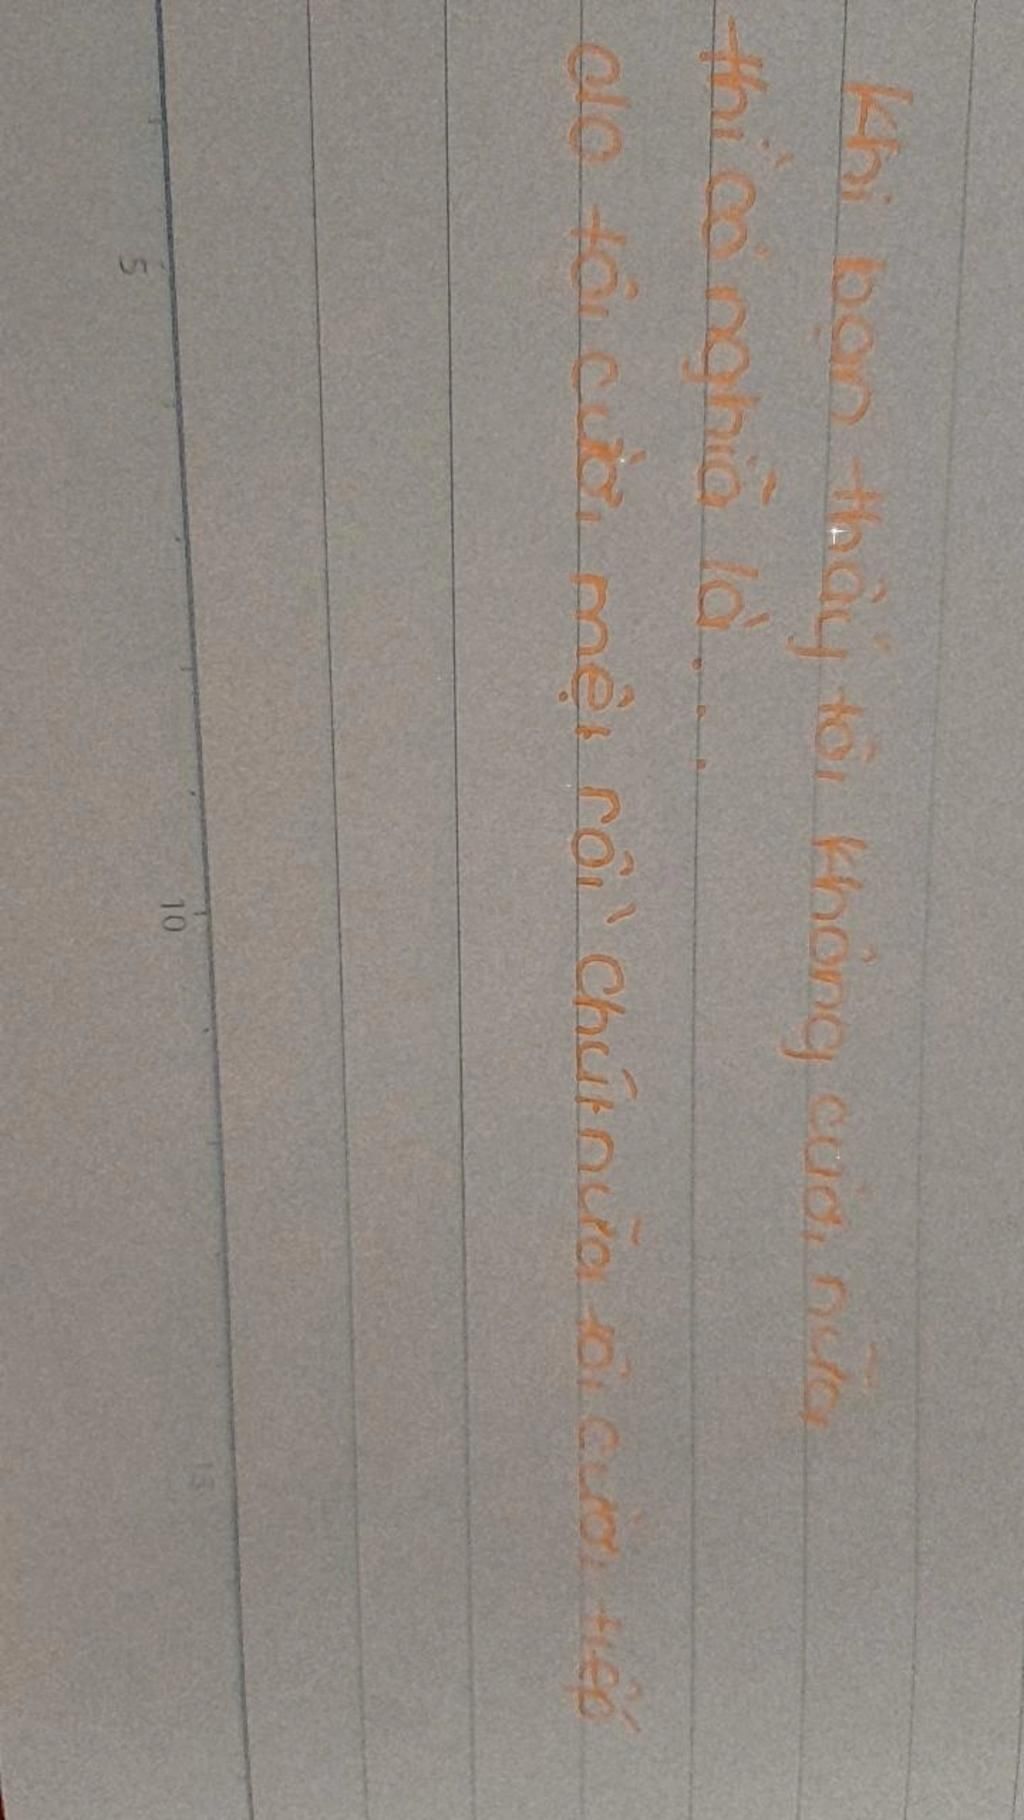 Khi bạn thấy tôi không cười nữa
thì có nghĩa là...
do tôi cười mệt rồi chút nữa tôi cười tiếp
5
10
15